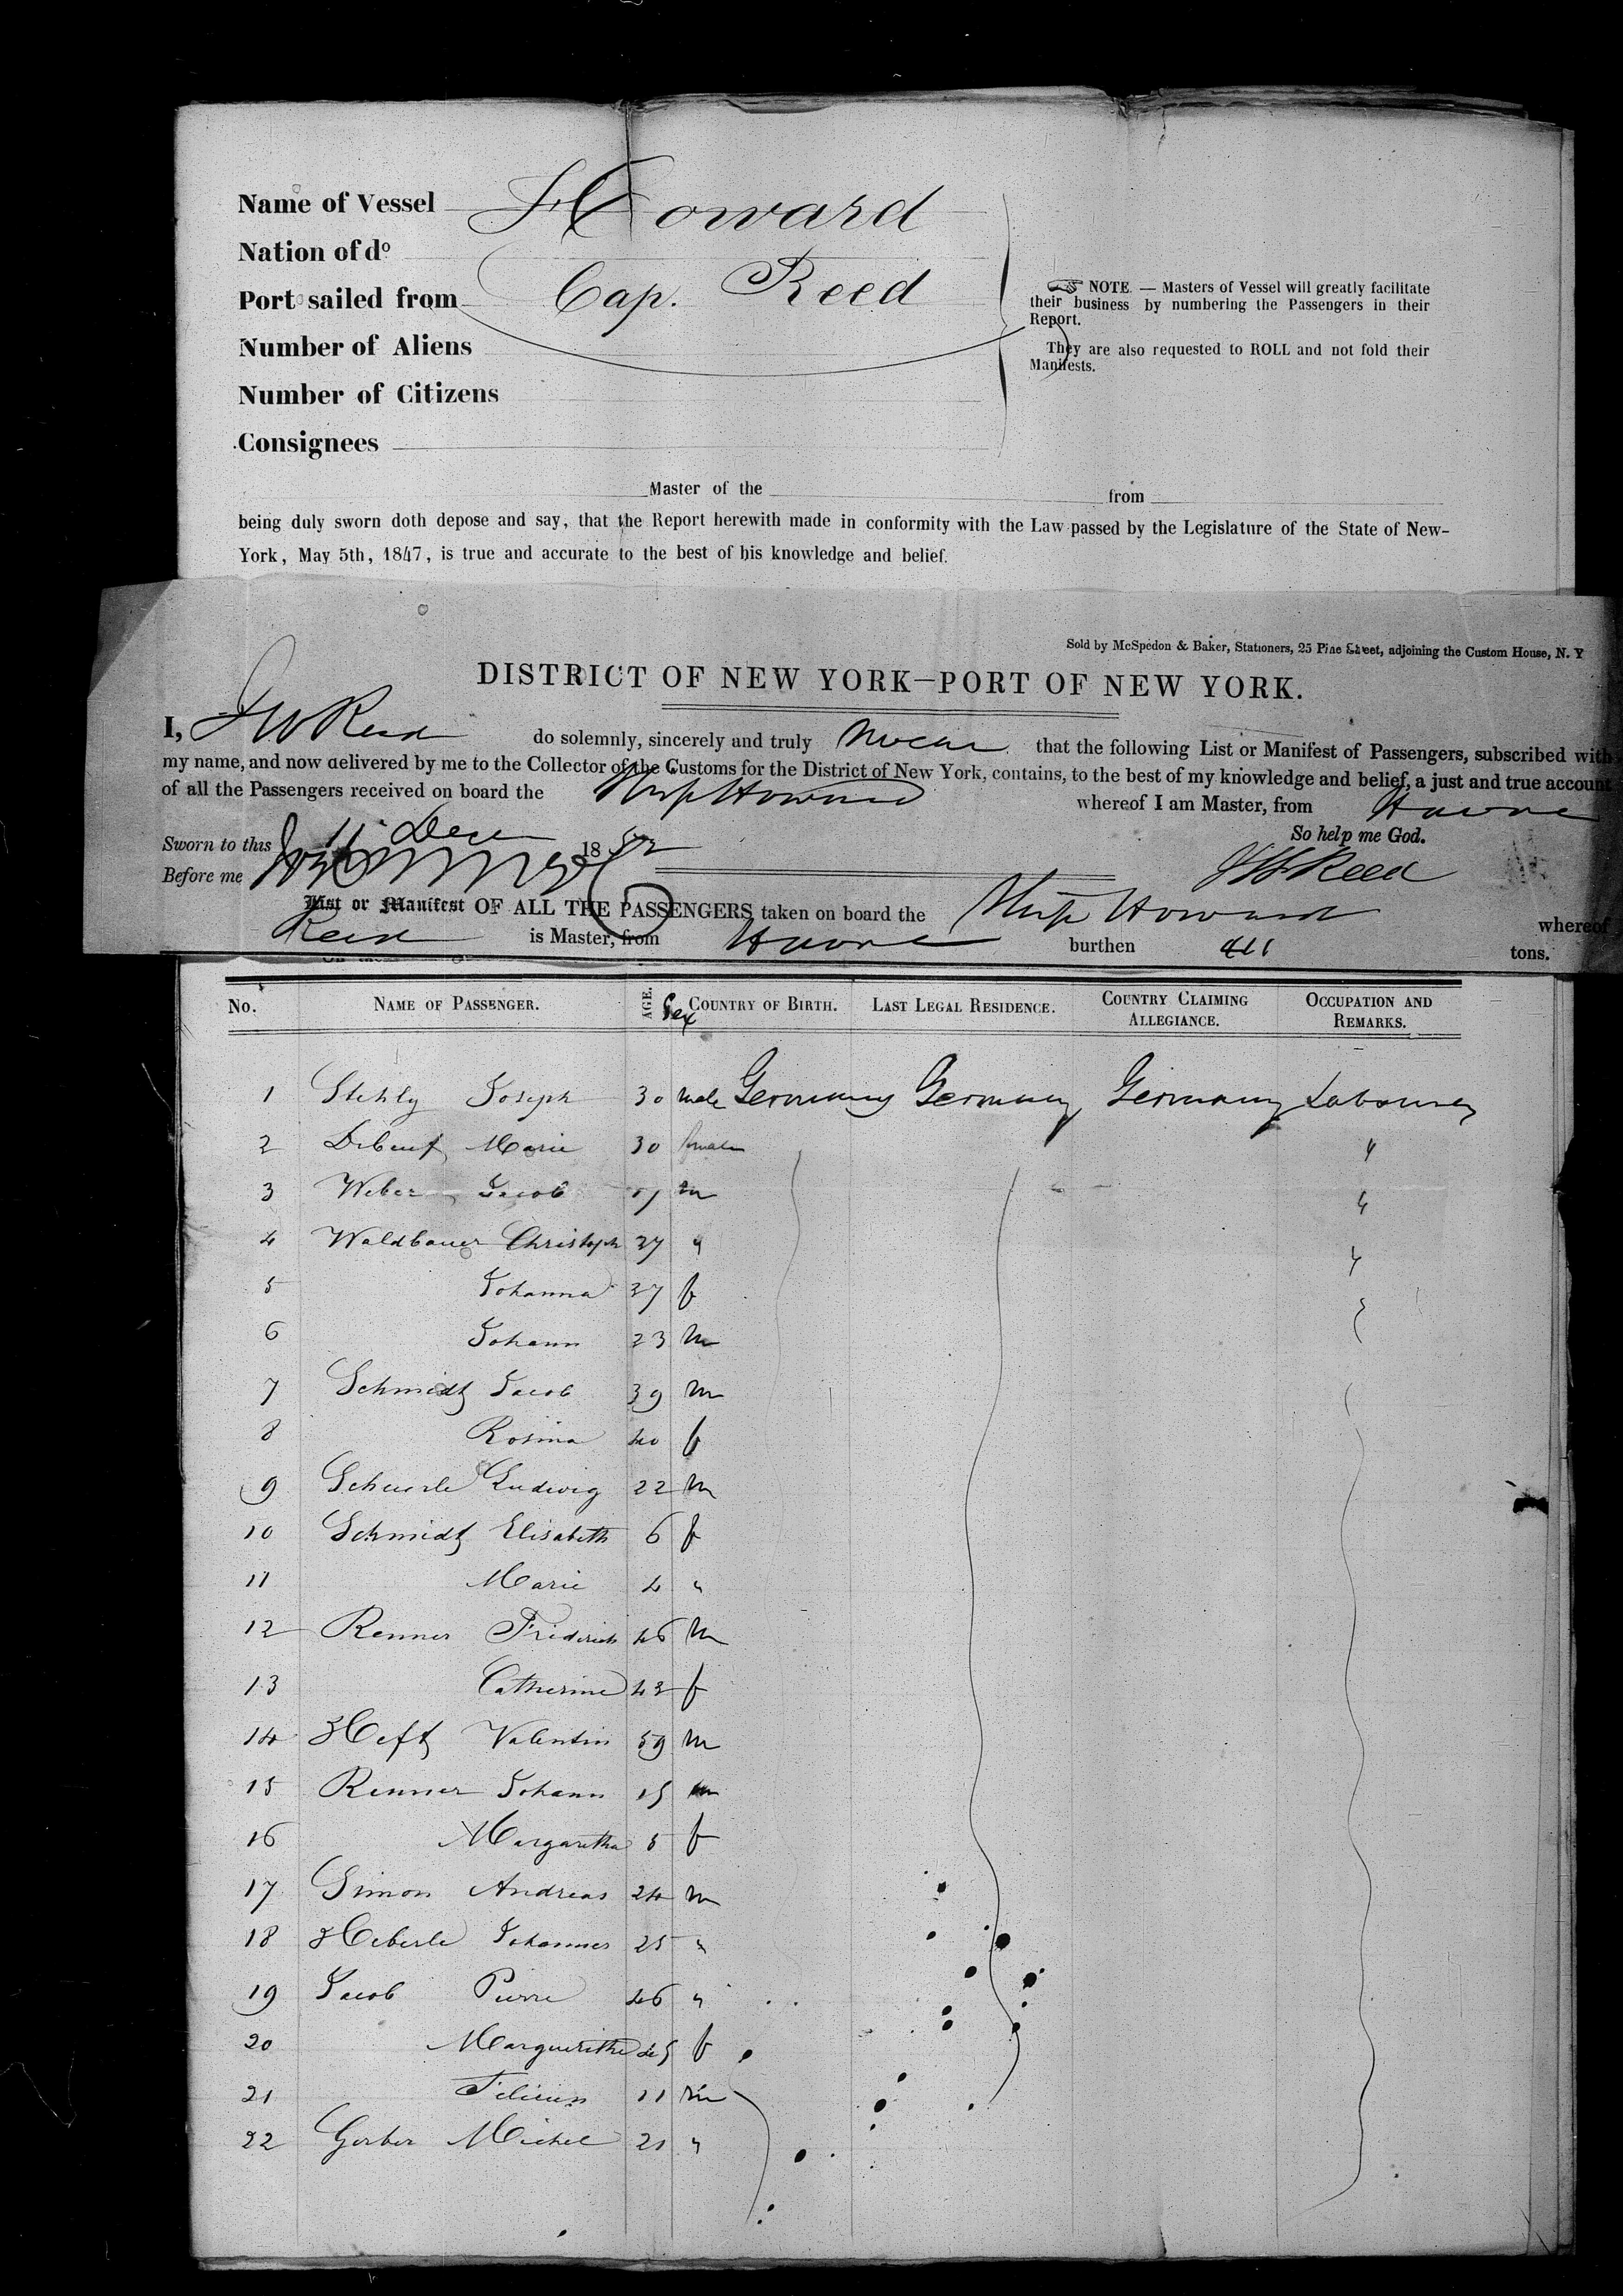 Name of Vessel Howard
Nation of do
Port sailed from Cap. Reed
Number of Aliens
Number of Citizens
Consignees
NOTE. — Masters of Vessel will greatly facilitate
their business by numbering the Passengers in their
Report.
They are also requested to ROLL and not fold their
Manifests.
Master of the from
being duly sworn doth depose and say, that the Report herewith made in conformity with the Law passed by the Legislature of the State of New-
York, May 5th, 1847, is true and accurate to the best of his knowledge and belief.
Sold by McSpedon & Baker, Stationers, 25 Pine Street, adjoining the Custom House, N. Y
DISTRICT OF NEW YORK—PORT OF NEW YORK.
I, J W Reed do solemnly, sincerely and truly swear that the following List or Manifest of Passengers, subscribed with
my name, and now delivered by me to the Collector of the Customs for the District of New York, contains, to the best of my knowledge and belief, a just and true account
of all the Passengers received on board the Ship Howard whereof I am Master, from Havre
So help me God.
Sworn to this 11 Decr 1852
Before me
J W Reed
List or Manifest OF ALL THE PASSENGERS taken on board the Ship Howard whereof
Reed is Master, from Havre burthen tons.
No. NAME OF PASSENGER. AGE. Sex COUNTRY OF BIRTH. LAST LEGAL RESIDENCE. COUNTRY CLAIMING ALLEGIANCE. OCCUPATION AND REMARKS.
1 Stehly Joseph 30 male Germany Germany Germany Labourer
2 Marie 30 female "
3 Weber Jacob m "
4 Waldbauer Christoph 27 " "
5 Johanna 27 f
6 Johann 23 m
7 Schmidt Jacob 39 m
8 Rosina 40 f
9 Scheuerle Ludwig 22 m
10 Schmidt Elisabeth 6 f
11 Marie 4 "
12 Renner Friderich 46 m
13 Catherine 43 f
14 Heft Valentin 59 m
15 Renner Johann 15 m
16 Margaretha 5 f
17 Simon Andreas 24 m
18 Heberle Johannes 25 "
19 Jacob Pierre 46 "
20 Marguerithe 45 f
21 Felicien 11 m
22 Gerber Michel 21 "